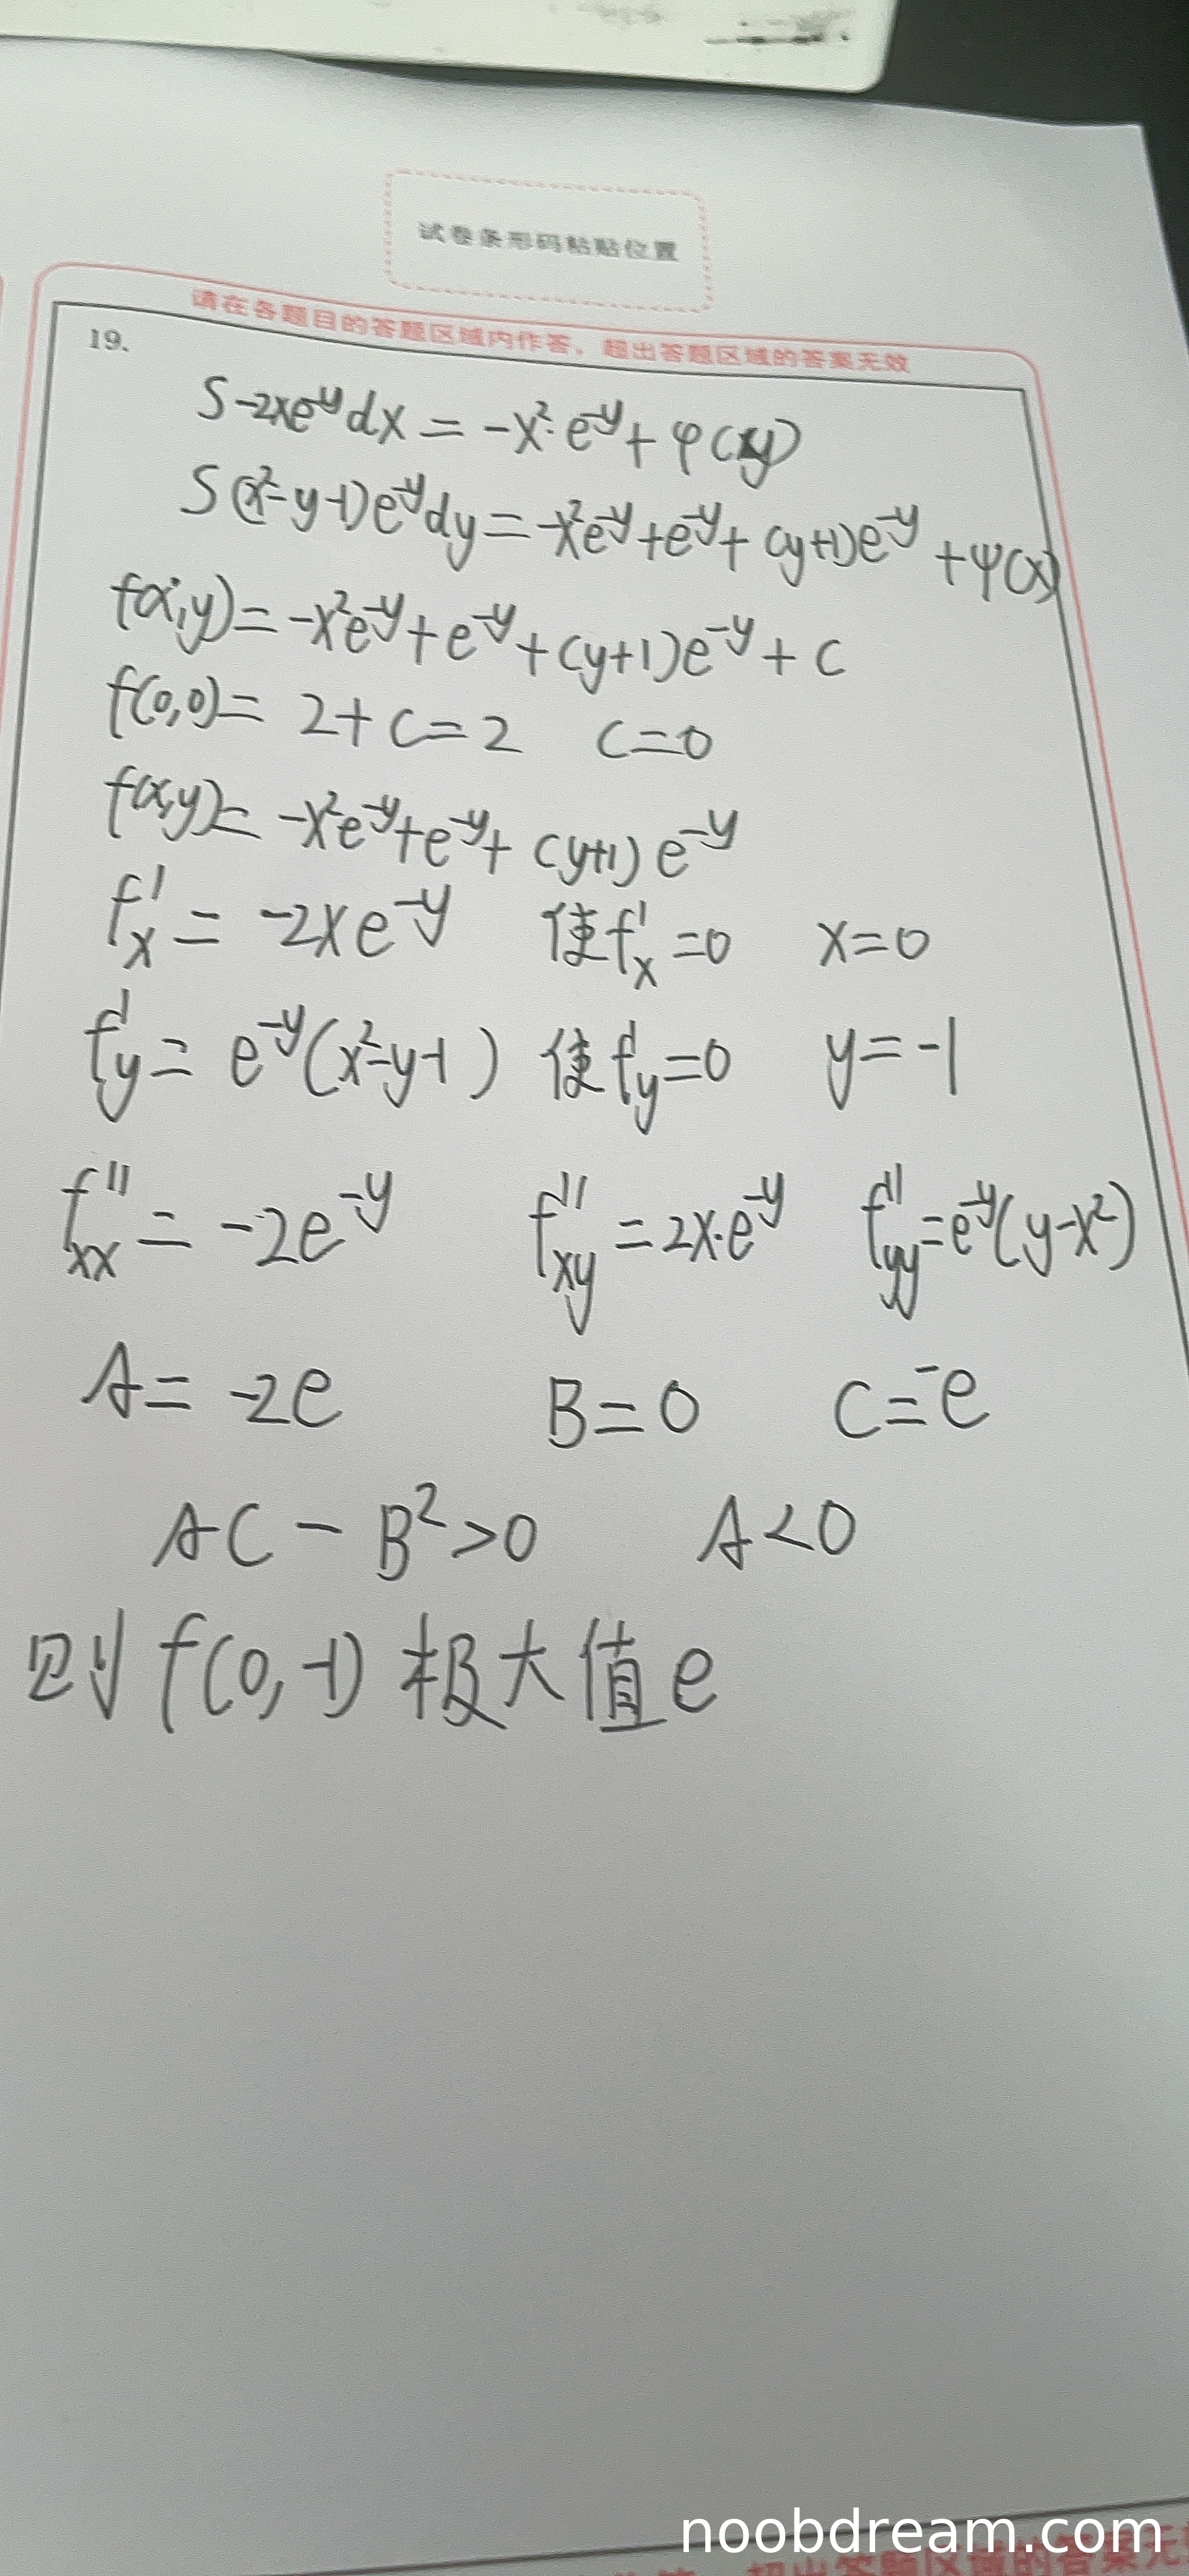 试卷条形码粘贴位置
请在各题目的答题区域内作答，超出答题区域的答案无效
19.
∫-2xe^{-y}dx = -x²·e^{-y} + φ(y)
∫(x²-y-1)e^{-y}dy = -x²e^{-y} + e^{-y} + (y+1)e^{-y} + ψ(x)
f(x,y) = -x²e^{-y} + e^{-y} + (y+1)e^{-y} + C
f(0,0) = 2+C=2 C=0
f(x,y) = -x²e^{-y} + e^{-y} + (y+1)e^{-y}
f'_x = -2xe^{-y} 使f'_x=0 x=0
f'_y = e^{-y}(x²-y-1) 使f'_y=0 y=-1
f''_{xx} = -2e^{-y} f''_{xy} = 2x·e^{-y} f''_{yy} = e^{-y}(y-x²)
A = -2e B = 0 C = -e
AC - B² > 0 A < 0
则 f(0,-1) 极大值 e
noobdream.com